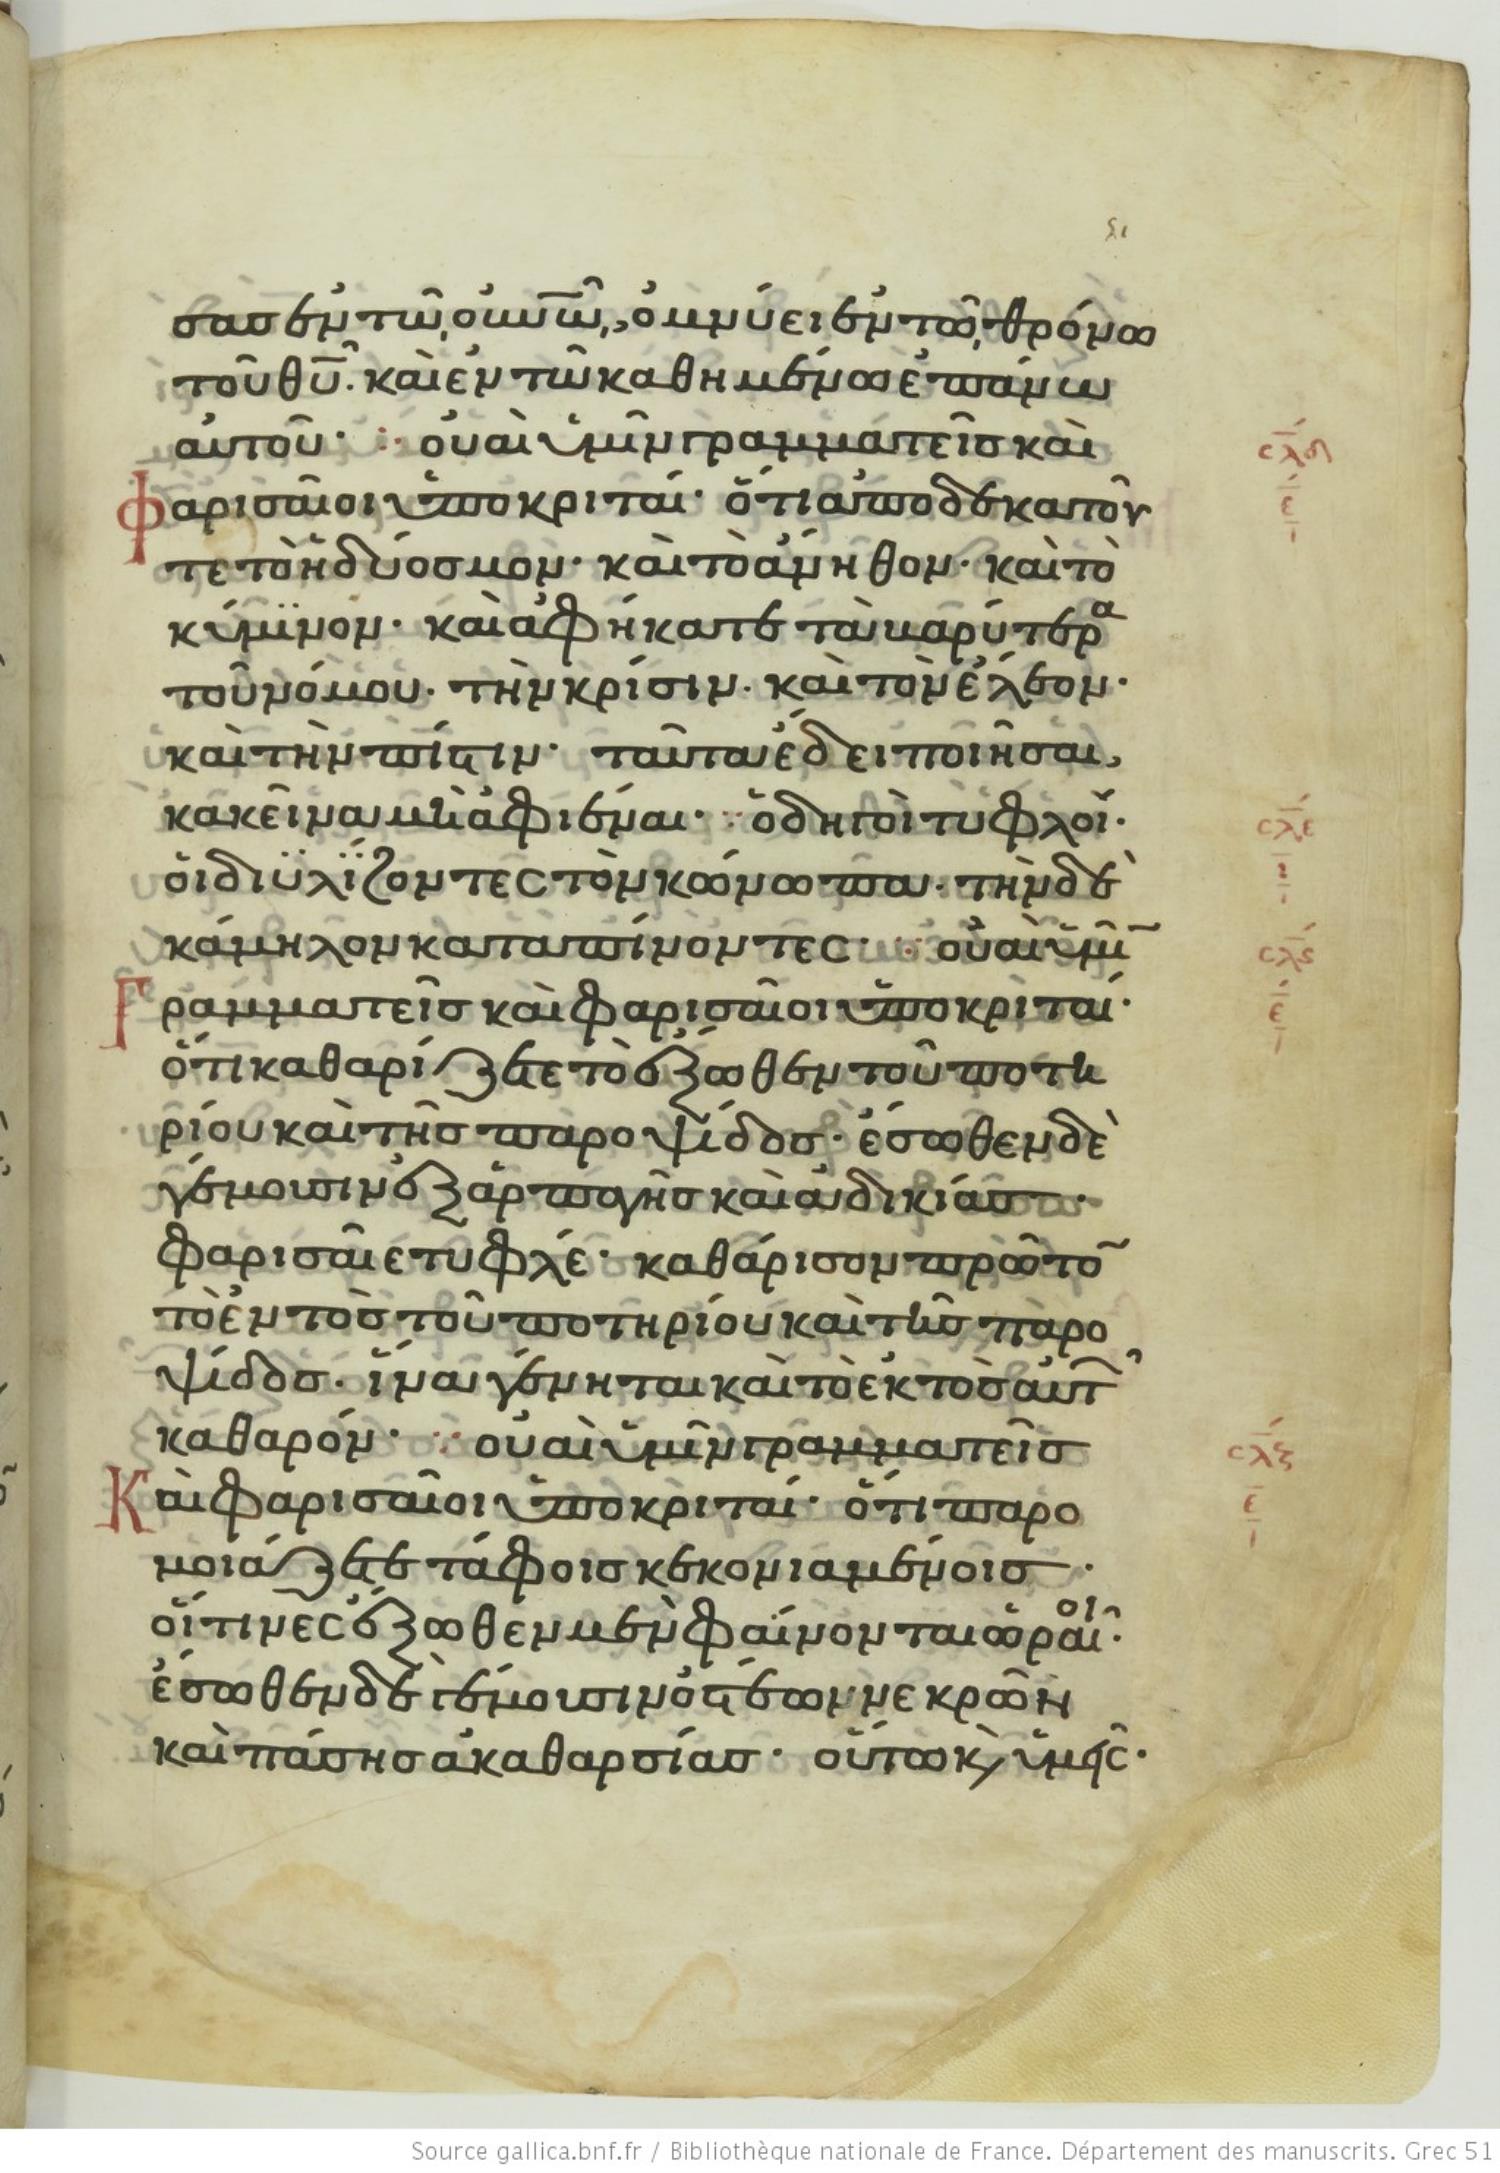 51
σας ἐν τῶ οὐνῶ, ὀμνύει ἐν τῶ θρόνω
τοῦ θυ̅. καὶ ἐν τῶ καθημένω ἐπάνω
αὐτοῦ· οὐαὶ ὑμῖν γραμματεῖς καὶ
σλδ
Φαρισαῖοι ὑποκριταί· ὅτι ἀποδεκατοῦ
ε
τε τὸ ἡδύοσμον· καὶ τὸ ἄνηθον· καὶ τὸ
κύμϊνον· καὶ ἀφήκατε τὰ βαρύτερα
τοῦ νόμου· τὴν κρίσιν· καὶ τὸν ἔλεον·
καὶ τὴν πίστιν· ταῦτα ἔδει ποιῆσαι,
κακεῖνα μὴ ἀφιέναι· ὁδηγοὶ τυφλοί·
σλε
οἱ διϋλΐζοντες τὸν κώνωπα· τὴν δὲ
ι
κάμηλον καταπίνοντες· οὐαὶ ὑμῖ̅
σλς
Γραμματεῖς καὶ φαρισαῖοι ὑποκριταί·
ε
ὅτι καθαρίζετε τὸ ἔξωθεν τοῦ ποτη
ρίου καὶ τῆς παροψίδος· ἔσωθεν δὲ
γέμουσιν ἐξ ἁρπαγῆς καὶ ἀδικίας·
φαρισαῖε τυφλέ· καθάρισον πρῶτο̅
τὸ ἐντὸς τοῦ ποτηρίου καὶ τῆς παρο
ψίδος· ἵνα γένηται καὶ τὸ ἐκτὸς αὐτ
καθαρόν· οὐαὶ ὑμῖν γραμματεῖς
σλζ
Καὶ φαρισαῖοι ὑποκριταί· ὅτι παρο
ε
μοιάζετε τάφοις κεκονιαμένοις·
οἵτινες ἔξωθεν μὲν φαίνονται ὡραῖοι·
ἔσωθεν δὲ γέμουσιν ὀστέων νεκρῶν
καὶ πάσης ἀκαθαρσίας· οὕτω κ̀ ὑμεῖς·
Source gallica.bnf.fr / Bibliothèque nationale de France. Département des manuscrits. Grec 51